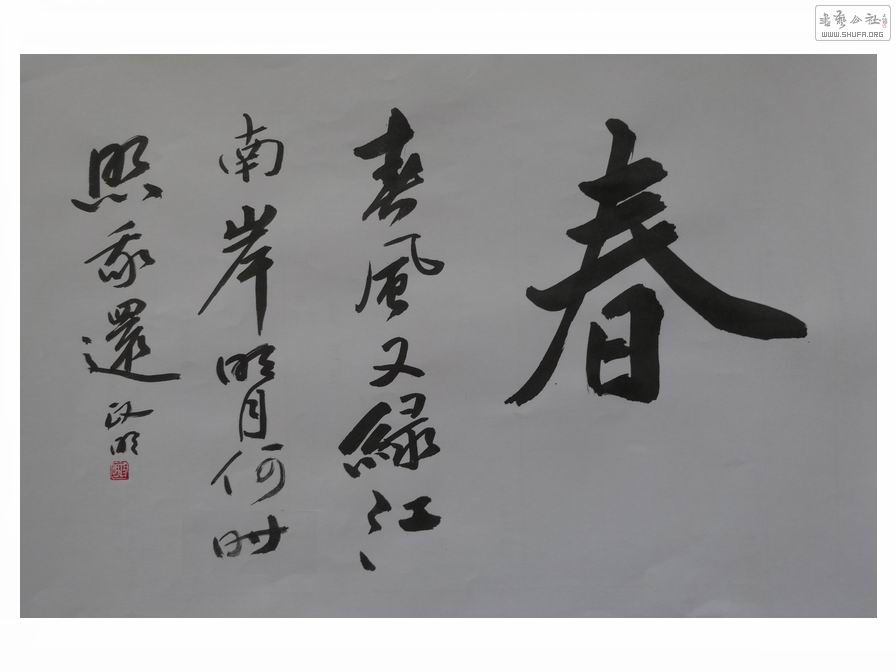 春
春風又緑江
南岸明月何时
照我還
政明
書藝公社
WWW.SHUFA.ORG